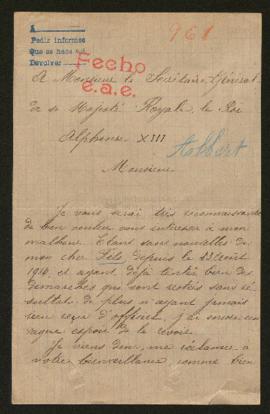 A
Pedir informes
Que se hace así
Devolver
961
Fecho
e.a.e.
A Monsieur le Secrétaire Général
de sa Majesté Royale le Roi
Alphonse XIII
Monsieur
Je vous serai très reconnaissante
de bien vouloir vous intéresser à mon
malheur. Etant sans nouvelles de
mon cher Fils depuis le 23 août
1914, et ayant déjà tentée bien des
démarches qui sont restés sans ré
sultat, de plus n'ayant jamais
rien reçu d'officiel, j'ai encore
espoir de le revoir.
Je viens donc, me
votre bienveillance, comme bien